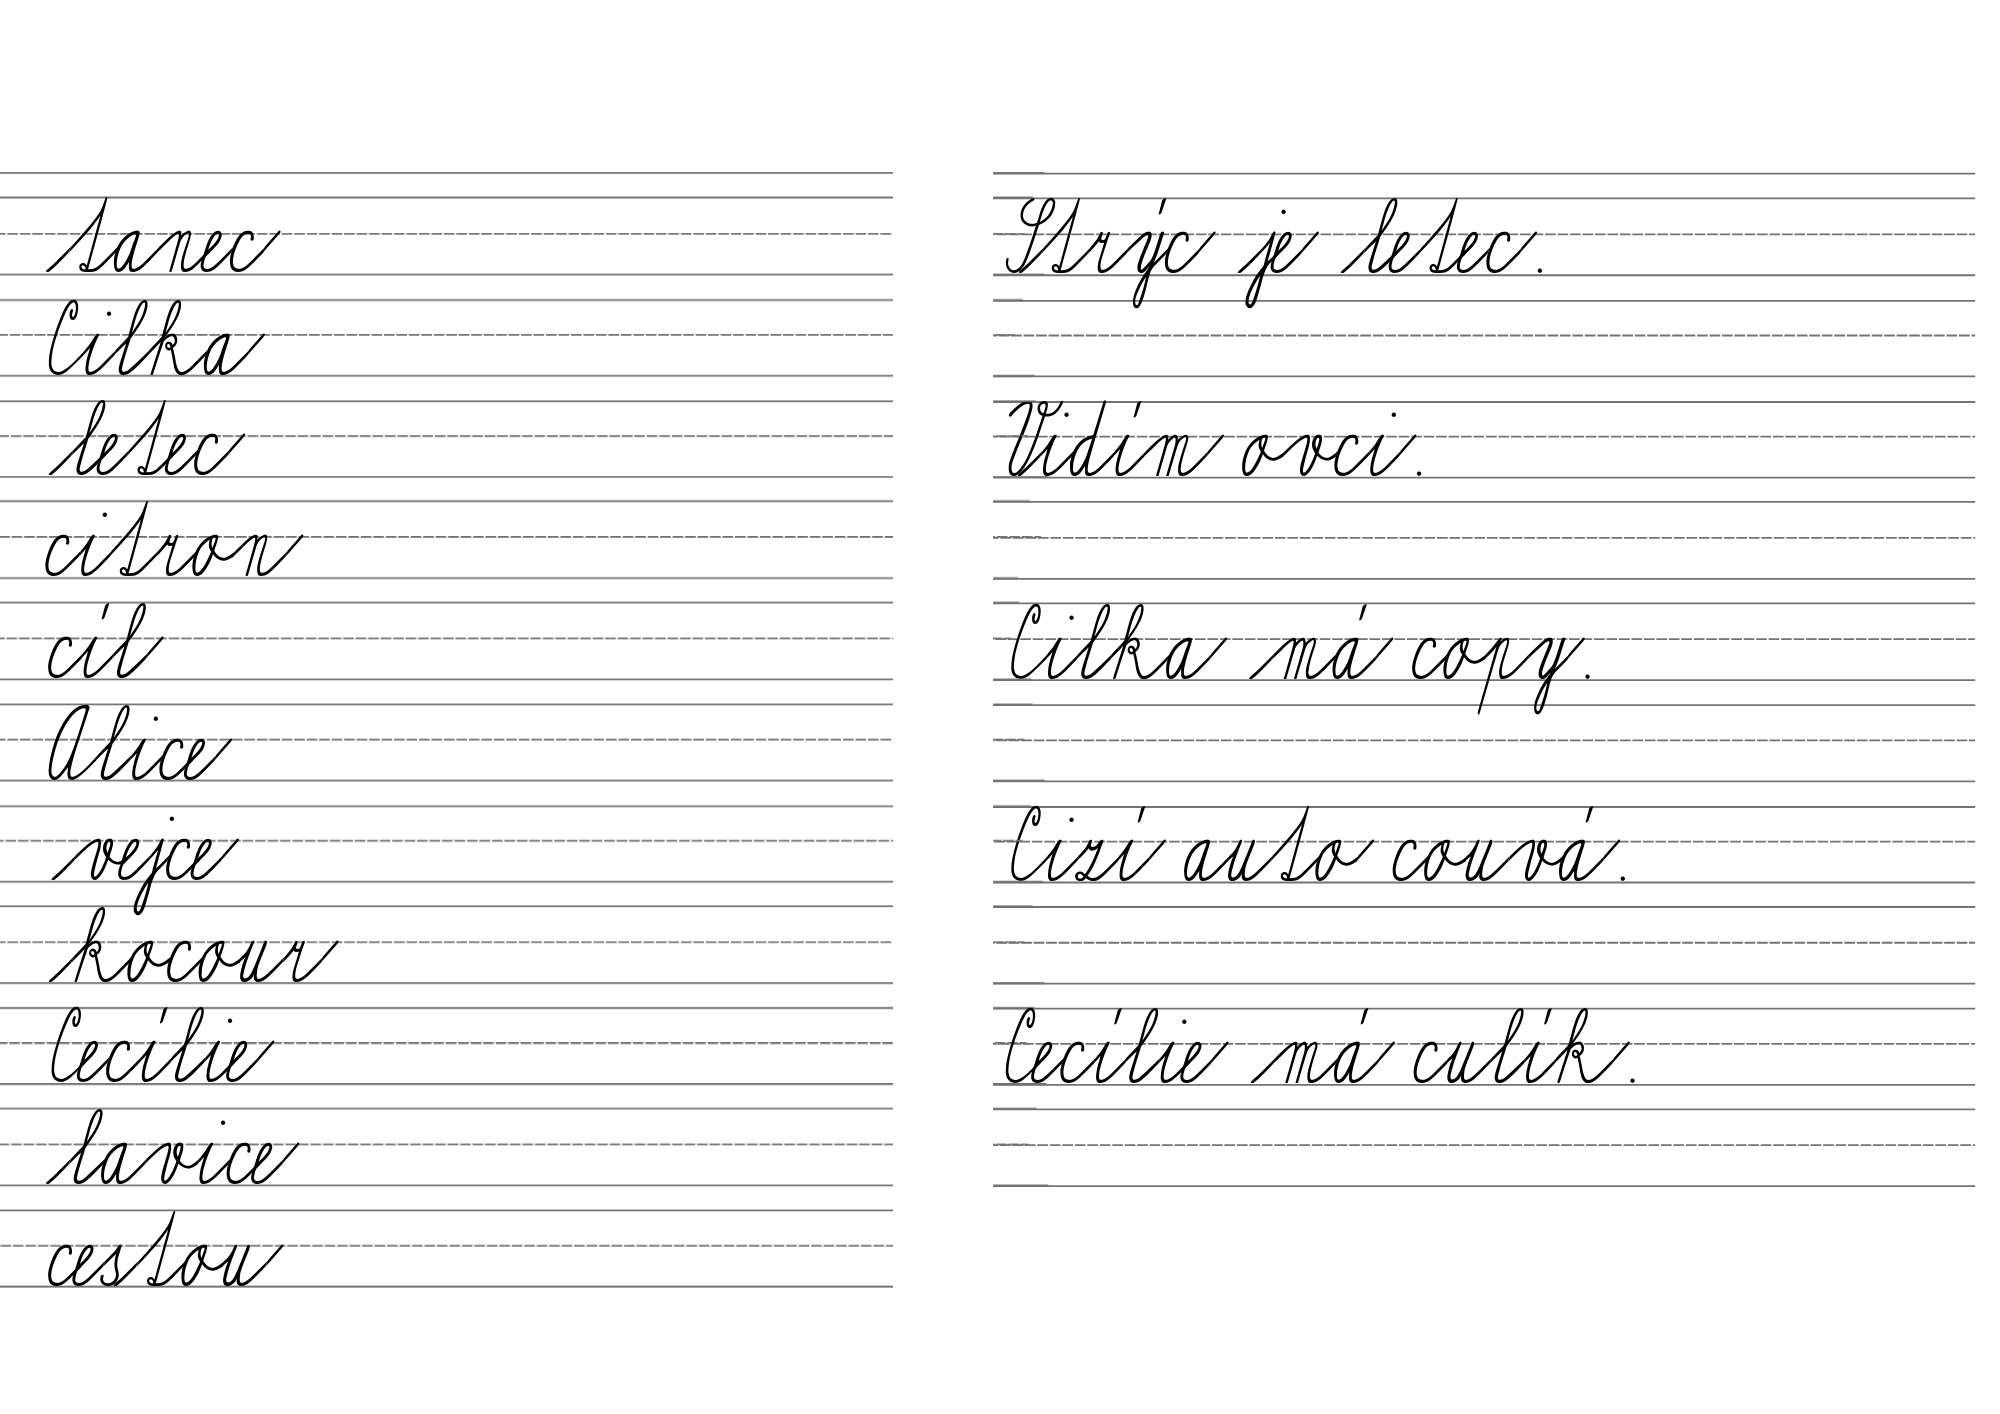 tanec
Cilka
letec
citron
cíl
Alice
vejce
kocour
Cecílie
lavice
cestou
Strýc je letec.
Vidím ovci.
Cilka má copy.
Cizí auto couvá.
Cecílie má culík.